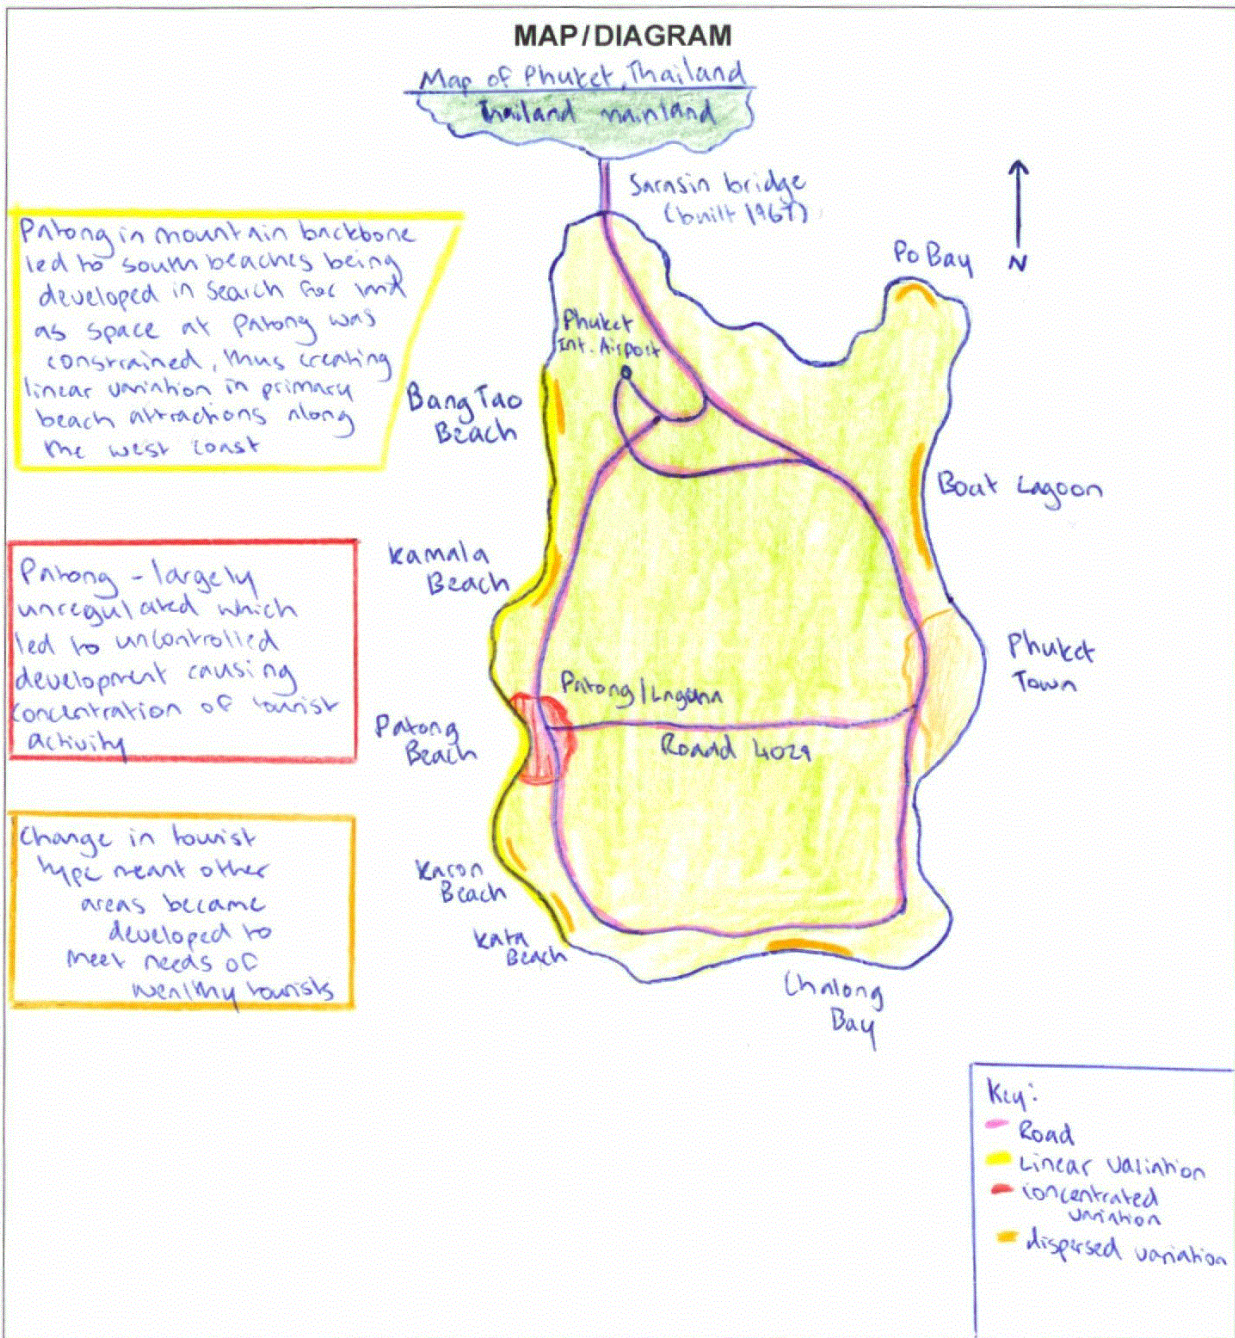 MAP/DIAGRAM
Map of Phuket, Thailand
Thailand mainland
Sarasin bridge
(built 1967)
N
Po Bay
Patong in mountain backbone
led to south beaches being
developed in search for land
as space at Patong was
constrained, thus creating
linear variation in primary
beach attractions along
the west coast
Phuket
Int. Airport
Bang Tao
Beach
Boat Lagoon
Kamala
Beach
Patong - largely
unregulated which
led to uncontrolled
development causing
concentration of tourist
activity
Phuket
Town
Patong/Laguna
Patong
Beach
Roaad 4029
Change in tourist
type meant other
areas became
developed to
meet needs of
wealthy tourists
Karon
Beach
Kata
Beach
Chalong
Bay
Key:
Road
Linear variation
concentrated
variation
dispersed variation